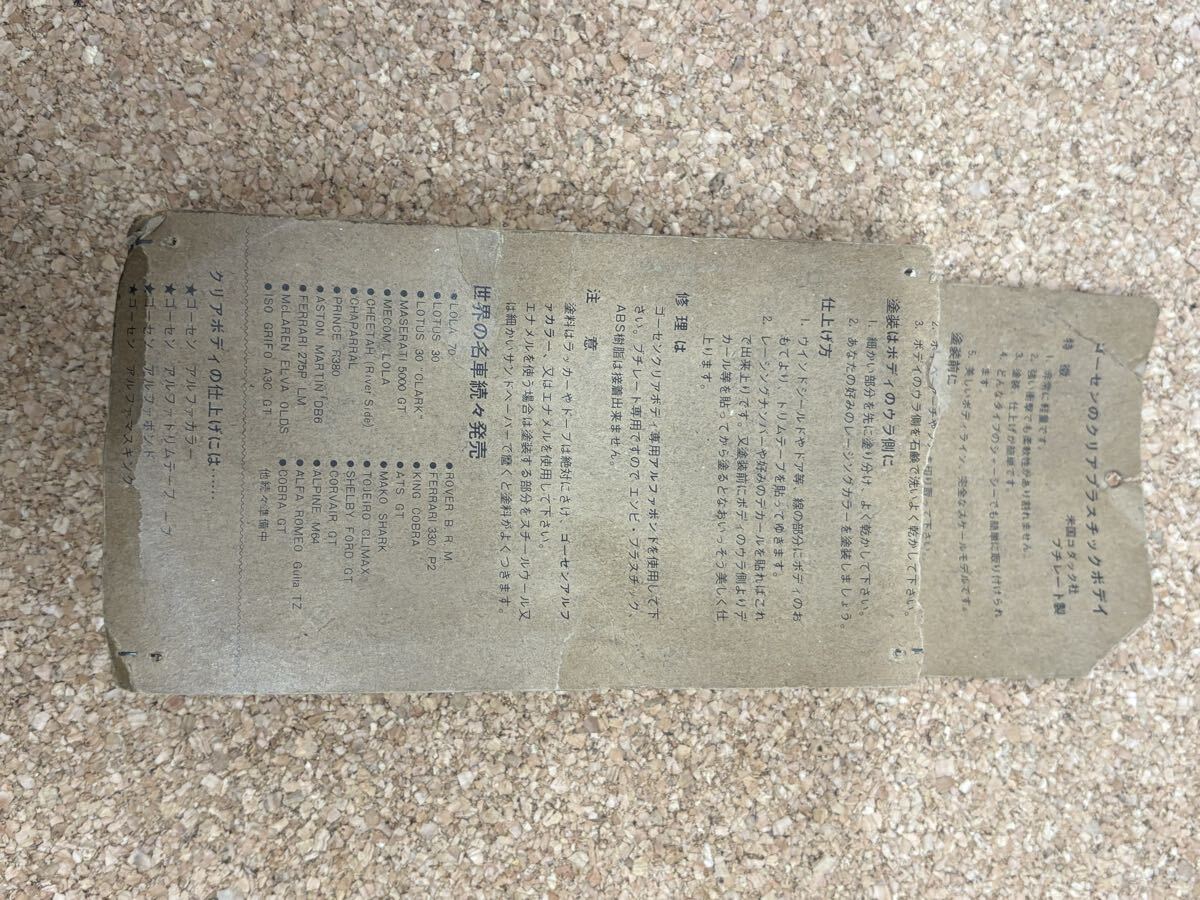 ゴーセンのクリアプラスチックボデイ
米国コダック社
ブチレート製
特徴
1. 非常に軽量です
2. 強い衝撃でも柔軟性があり割れません。
3. 塗装、仕上げが簡単です
4. どんなタイプのシャーシーでも簡単に取り付けられ
ます
5. 美しいボディライン、完全なスケールモデルです
塗装前に
切り取って下さい。
3. ボディのウラ側を石鹸で洗いよく乾かして下さい。
塗装はボディのウラ側に
1. 細かい部分を先に塗り分け、よく乾かして下さい。
2. あなたの好みのレーシングカラーを塗装しましょう。
仕上げ方
1. ウインドシールドやドア等、線の部分にボディのお
もてより、トリムテープを貼ってゆきます。
2. レーシングナンバーや好みのデカールを貼ればこれ
で出来上りです。又塗装前にボディのウラ側よりデ
カール等を貼ってから塗るとなおいっそう美しく仕
上ります。
修理は
ゴーセンクリアボディ専用アルファボンドを使用して下
さい。ブチレート専用ですので エンビ・プラスチック、
ABS樹脂は接着出来ません。
注意
塗料はラッカーやドープは絶対にさけ、ゴーセンアルフ
ァカラー、又はエナメルを使用して下さい。
エナメルを使う場合は塗装する部分をスチールウール又
は細かいサンドペーパーで磨くと塗料がよくつきます。
世界の名車続々発売
●LOLA 70
●LOTUS 30
●LOTUS 30 "CLARK"
●MASERATI 5000 GT
●MECOM LOLA
●CHEETAH (River Side)
●CHAPARRAL
●PRINCE R380
●ASTON MARTIN DB6
●FERRARI 275P LM
●McLAREN ELVA OLDS
●ISO GRIFO A3C GT
●ROVER B. R. M.
●FERRARI 330 P2
●KING COBRA
●ATS GT
●MAKO SHARK
●TOJEIRO CLIMAX
●SHELBY FORD GT
●CORVAIR GT
●ALPINE M64
●ALFA ROMEO Gulia TZ
●COBRA GT
他続々準備中
クリアボディの仕上げには……
★ゴーセン アルファカラ
★ゴーセン アルファトリムテープ
★ゴーセン アルファボンド
★ゴーセン アルファマスキング